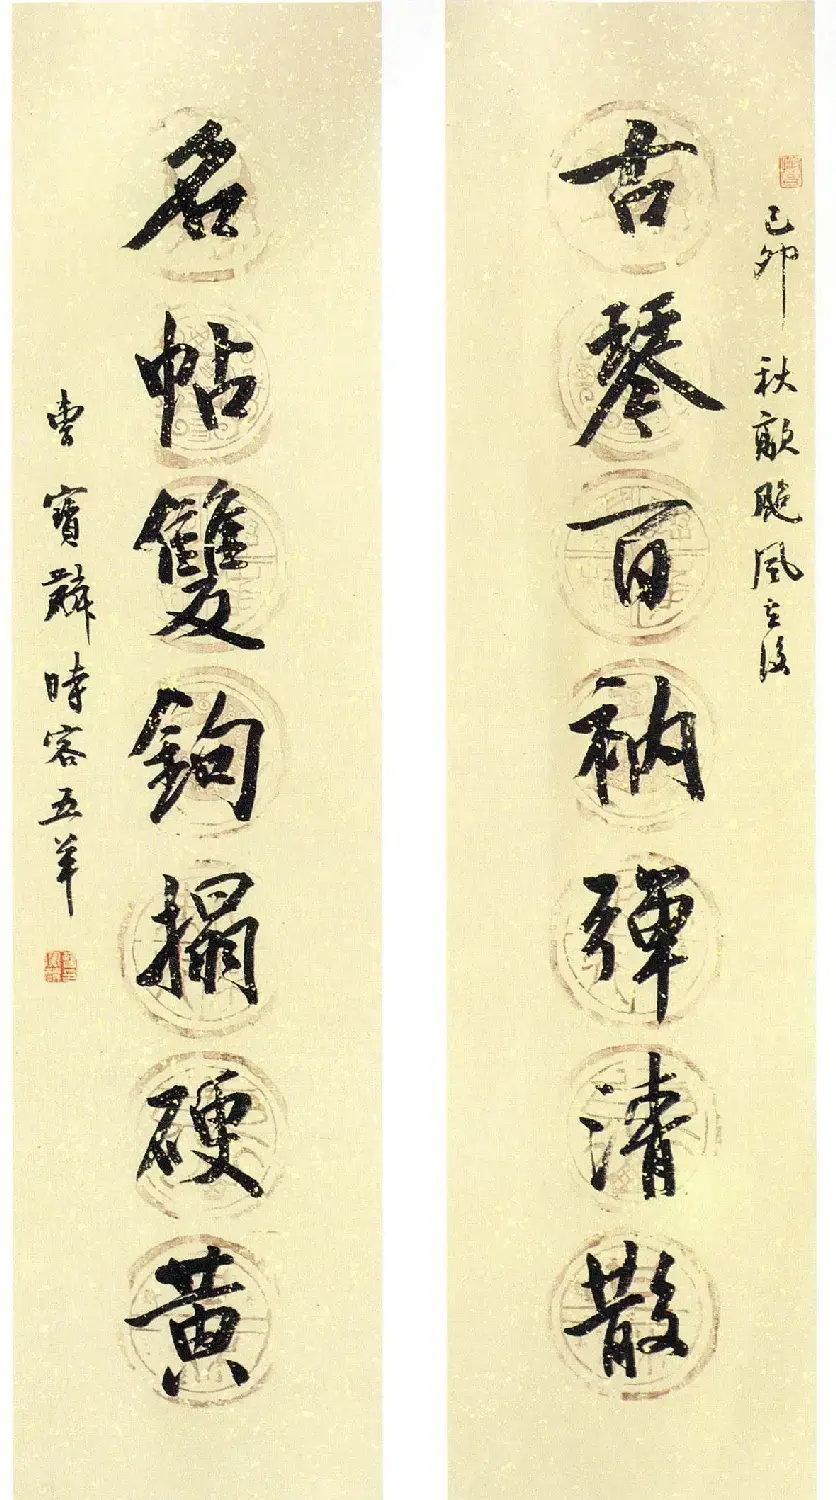 己卯秋颱風之後
古琴百衲彈清散
名帖雙鉤搨硬黄
曹寶麟時客五羊